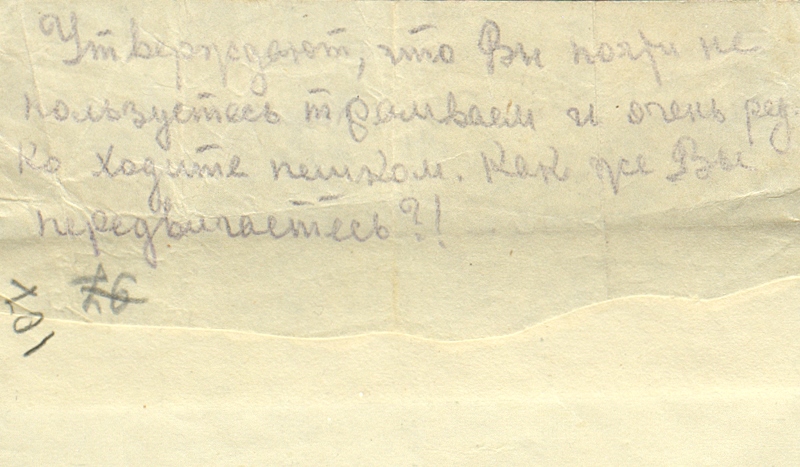 Утверждают, что Вы почти не
пользуетесь трамваем и очень ред-
ко ходите пешком. Как же Вы
передвигаетесь?!